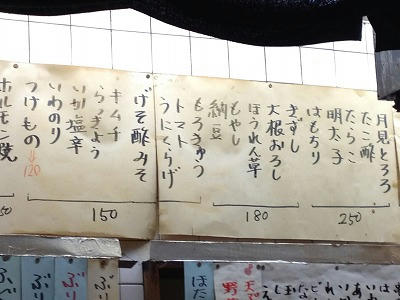 月見とろろ
たこ酢
たらこ
明太子
はもちり
250
きずし
大根おろし
ほうれん草
もやし
納豆
180
もろきゅう
トマト
うにくらげ
げそ酢みそ
キムチ
らっきょう
いか塩辛
いわのり
つけもの
⇒120
150
ホルモン焼
50